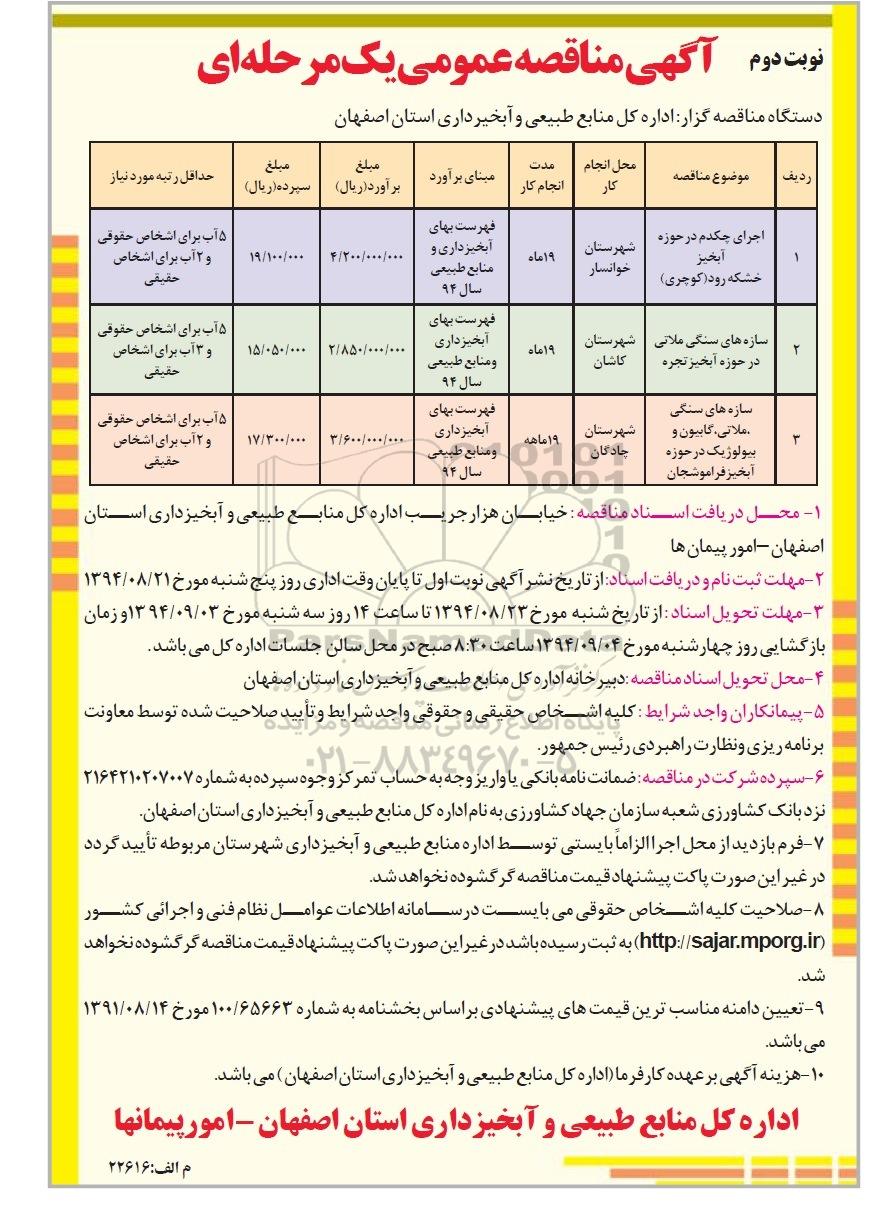 نوبت دوم
آگهی مناقصه عمومی یک مرحله‌ای
دستگاه مناقصه گزار: اداره کل منابع طبیعی و آبخیرداری استان اصفهان
ردیف | موضوع مناقصه | محل انجام کار | مدت انجام کار | مبنای برآورد | مبلغ برآورد(ریال) | مبلغ سپرده(ریال) | حداقل رتبه مورد نیاز
۱ | اجرای چکدم در حوزه آبخیز خشکه رود(کوچری) | شهرستان خوانسار | ۱۹ماه | فهرست بهای آبخیزداری و منابع طبیعی سال ۹۴ | ۴/۲۰۰/۰۰۰/۰۰۰ | ۱۹/۱۰۰/۰۰۰ | ۵آب برای اشخاص حقوقی و ۲آب برای اشخاص حقیقی
۲ | سازه های سنگی ملاتی در حوزه آبخیز تجره | شهرستان کاشان | ۱۹ماه | فهرست بهای آبخیزداری ومنابع طبیعی سال ۹۴ | ۲/۸۵۰/۰۰۰/۰۰۰ | ۱۵/۰۵۰/۰۰۰ | ۵آب برای اشخاص حقوقی و ۳آب برای اشخاص حقیقی
۳ | سازه های سنگی ،ملاتی،گابیون و بیولوژیک در حوزه آبخیزفراموشجان | شهرستان چادگان | ۱۹ماهه | فهرست بهای آبخیزداری ومنابع طبیعی سال ۹۴ | ۳/۶۰۰/۰۰۰/۰۰۰ | ۱۷/۳۰۰/۰۰۰ | ۵آب برای اشخاص حقوقی و ۲آب برای اشخاص حقیقی
۱- محل دریافت اسناد مناقصه: خیابان هزارجریب اداره کل منابع طبیعی و آبخیزداری استان
اصفهان –امور پیمان ها
۲-مهلت ثبت نام و دریافت اسناد: از تاریخ نشر آگهی نوبت اول تا پایان وقت اداری روز پنج شنبه مورخ ۱۳۹۴/۰۸/۲۱
۳-مهلت تحویل اسناد: از تاریخ شنبه مورخ ۱۳۹۴/۰۸/۲۳ تا ساعت ۱۴ روز سه شنبه مورخ ۱۳۹۴/۰۹/۰۳ و زمان
بازگشایی روز چهارشنبه مورخ ۱۳۹۴/۰۹/۰۴ ساعت ۸:۳۰ صبح در محل سالن جلسات اداره کل می باشد.
۴-محل تحویل اسناد مناقصه: دبیرخانه اداره کل منابع طبیعی و آبخیزداری استان اصفهان
۵-پیمانکاران واجد شرایط: کلیه اشخاص حقیقی و حقوقی واجد شرایط و تأیید صلاحیت شده توسط معاونت
برنامه ریزی ونظارت راهبردی رئیس جمهور.
۶-سپرده شرکت در مناقصه: ضمانت نامه بانکی یا واریز وجه به حساب تمرکز وجوه سپرده به شماره ۲۱۶۴۲۱۰۲۰۷۰۰۷
نزد بانک کشاورزی شعبه سازمان جهاد کشاورزی به نام اداره کل منابع طبیعی و آبخیزداری استان اصفهان.
۷-فرم بازدید از محل اجرا الزاماً بایستی توسط اداره منابع طبیعی و آبخیزداری شهرستان مربوطه تأیید گردد
در غیر این صورت پاکت پیشنهاد قیمت مناقصه گر گشوده نخواهد شد.
۸-صلاحیت کلیه اشخاص حقوقی می بایست در سامانه اطلاعات عوامل نظام فنی و اجرائی کشور
(http://sajar.mporg.ir) به ثبت رسیده باشد در غیر این صورت پاکت پیشنهاد قیمت مناقصه گر گشوده نخواهد
شد.
۹-تعیین دامنه مناسب ترین قیمت های پیشنهادی براساس بخشنامه به شماره ۱۰۰/۶۵۶۶۳ مورخ ۱۳۹۱/۰۸/۱۴
می باشد.
۱۰-هزینه آگهی بر عهده کارفرما (اداره کل منابع طبیعی و آبخیزداری استان اصفهان) می باشد.
اداره کل منابع طبیعی و آبخیزداری استان اصفهان –امورپیمانها
م الف:۲۲۶۱۶
ParsNamadData
پایگاه اطلاع رسانی مناقصه و مزایده
۰۲۱-۸۸۳۴۹۶۷۰-۵